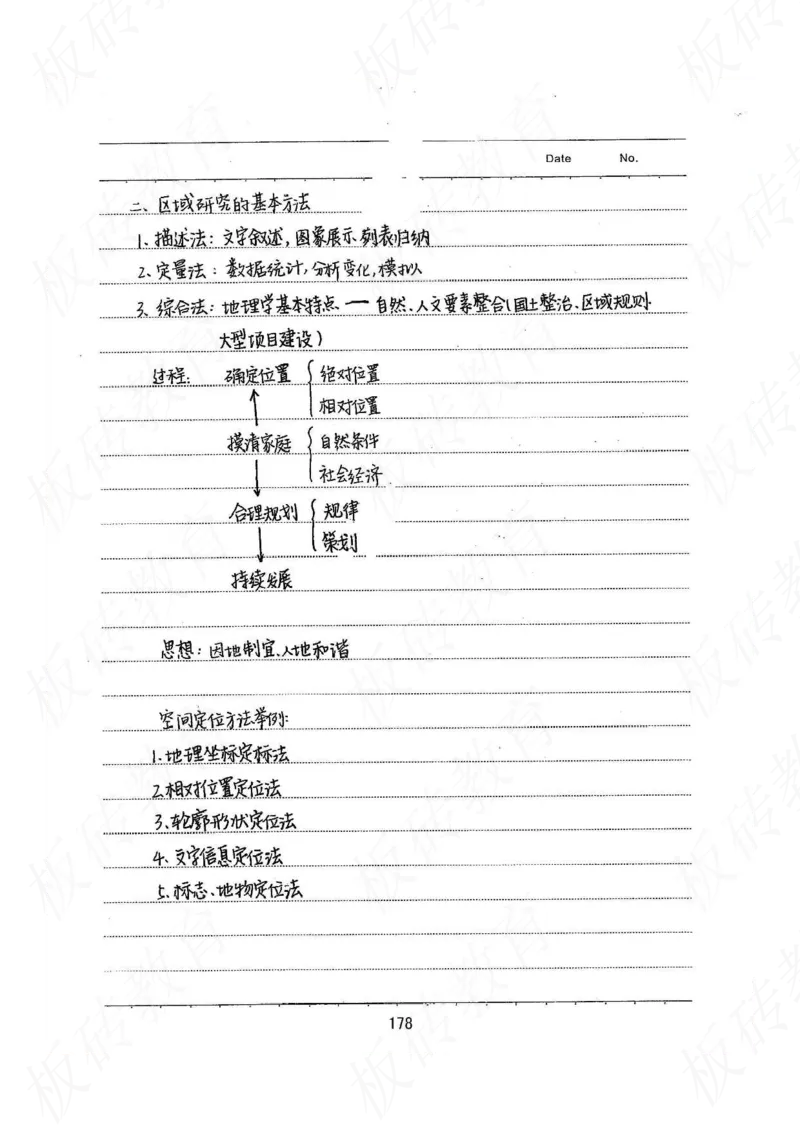 Date No.
二、区域研究的基本方法
1、描述法：文字叙述，图象展示、列表归纳
2、定量法：数据统计，分析变化，模拟
3、综合法：地理学基本特点 — 自然、人文要素整合（国土整治、区域规则
大型项目建设）
过程：确定位置 { 绝对位置
相对位置
↑
摸清家庭 { 自然条件
社会经济
↓
合理规划 { 规律
策划
↓
持续发展
思想：因地制宜、人地和谐
空间定位方法举例：
1.地理坐标定标法
2.相对位置定位法
3.轮廓形状定位法
4、文字信息定位法
5、标志、地物定位法
178
板砖教育